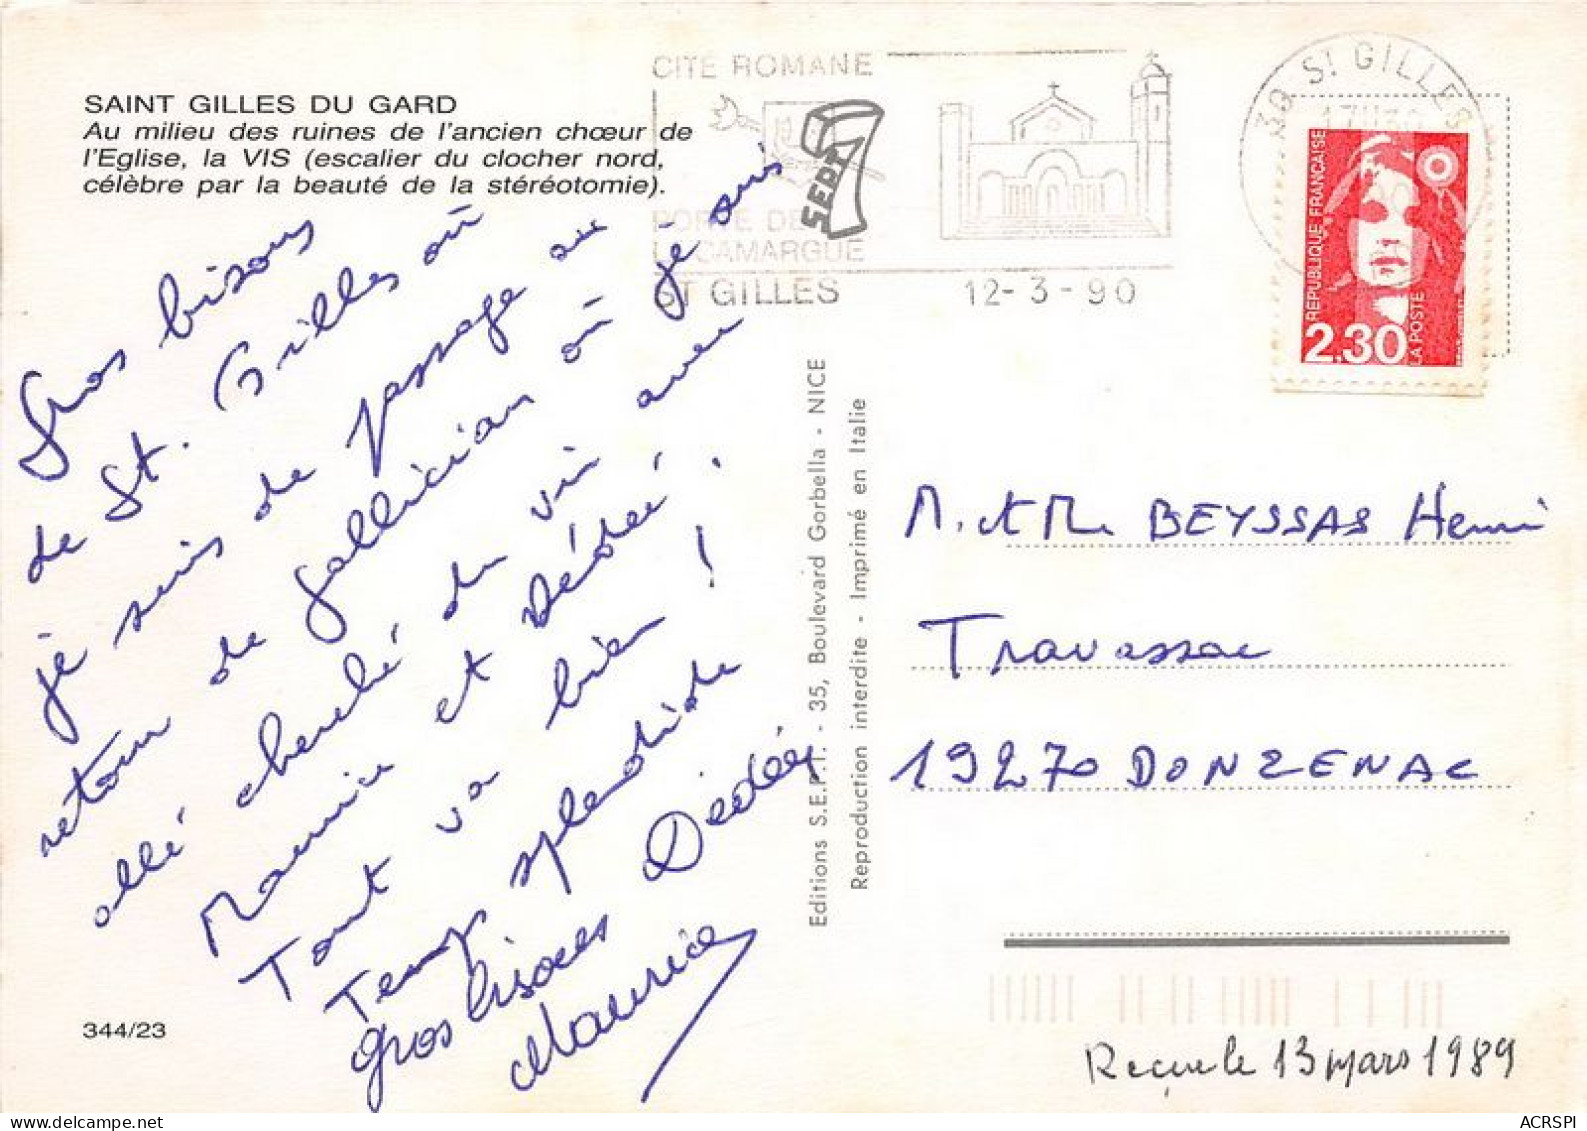 SAINT GILLES DU GARD
Au milieu des ruines de l'ancien chœur de
l'Eglise, la VIS (escalier du clocher nord,
célèbre par la beauté de la stéréotomie).
CITE ROMANE
PORTE DE
CAMARGUE
ST GILLES
SEPT
12-3-90
30 St GILLES
REPUBLIQUE FRANÇAISE
LA POSTE
2,30
Gros bisous
de St. Gilles où
je suis de passage au
retour de Gallician où je suis
allé cherché du vin avec
Maurice et Dédée.
Tout va bien !
Temps splendide
gros bisous Dédée
Maurice
Editions S.E.P.T. - 35, Boulevard Gorbella - NICE
Reproduction interdite - Imprimé en Italie
M. et Me BEYSSAS Henri
Travassac
19270 DONZENAC
344/23
Reçue le 13 mars 1989
ACRSPI